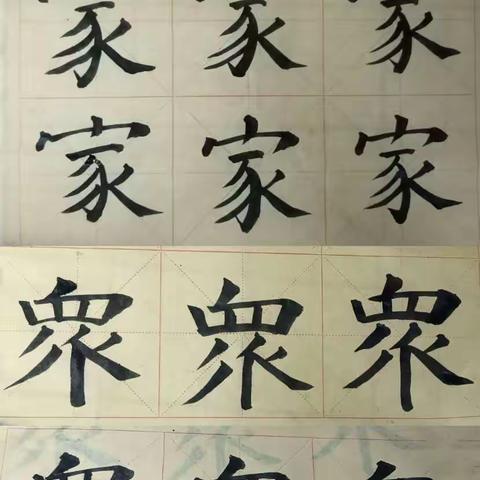 家家家
家家家
衆衆衆